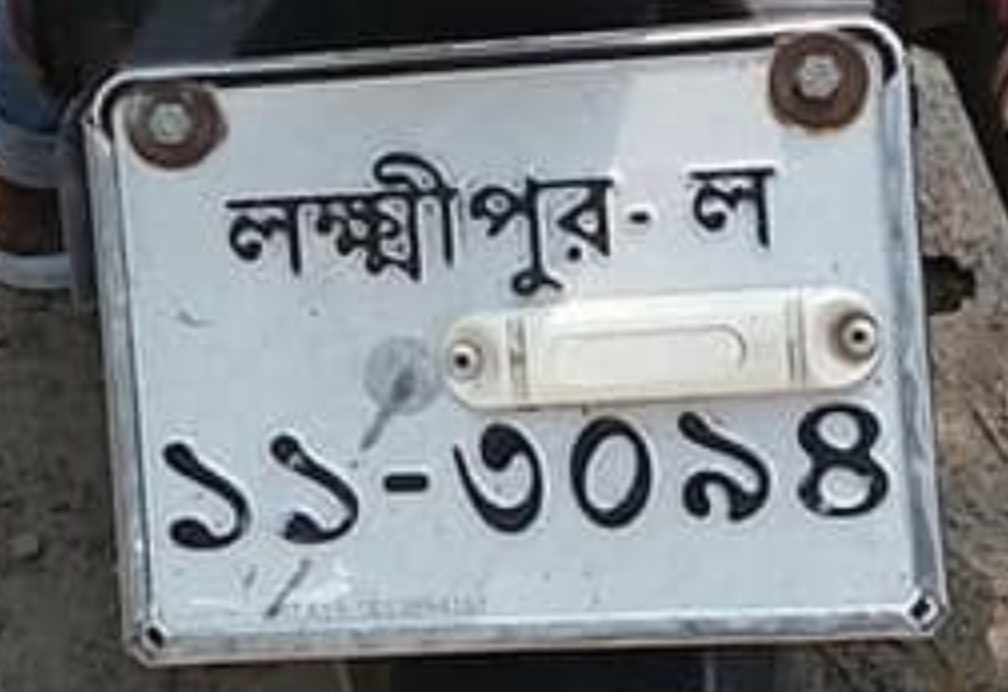 লক্ষ্মীপুর- ল
১১-৩০৯৪